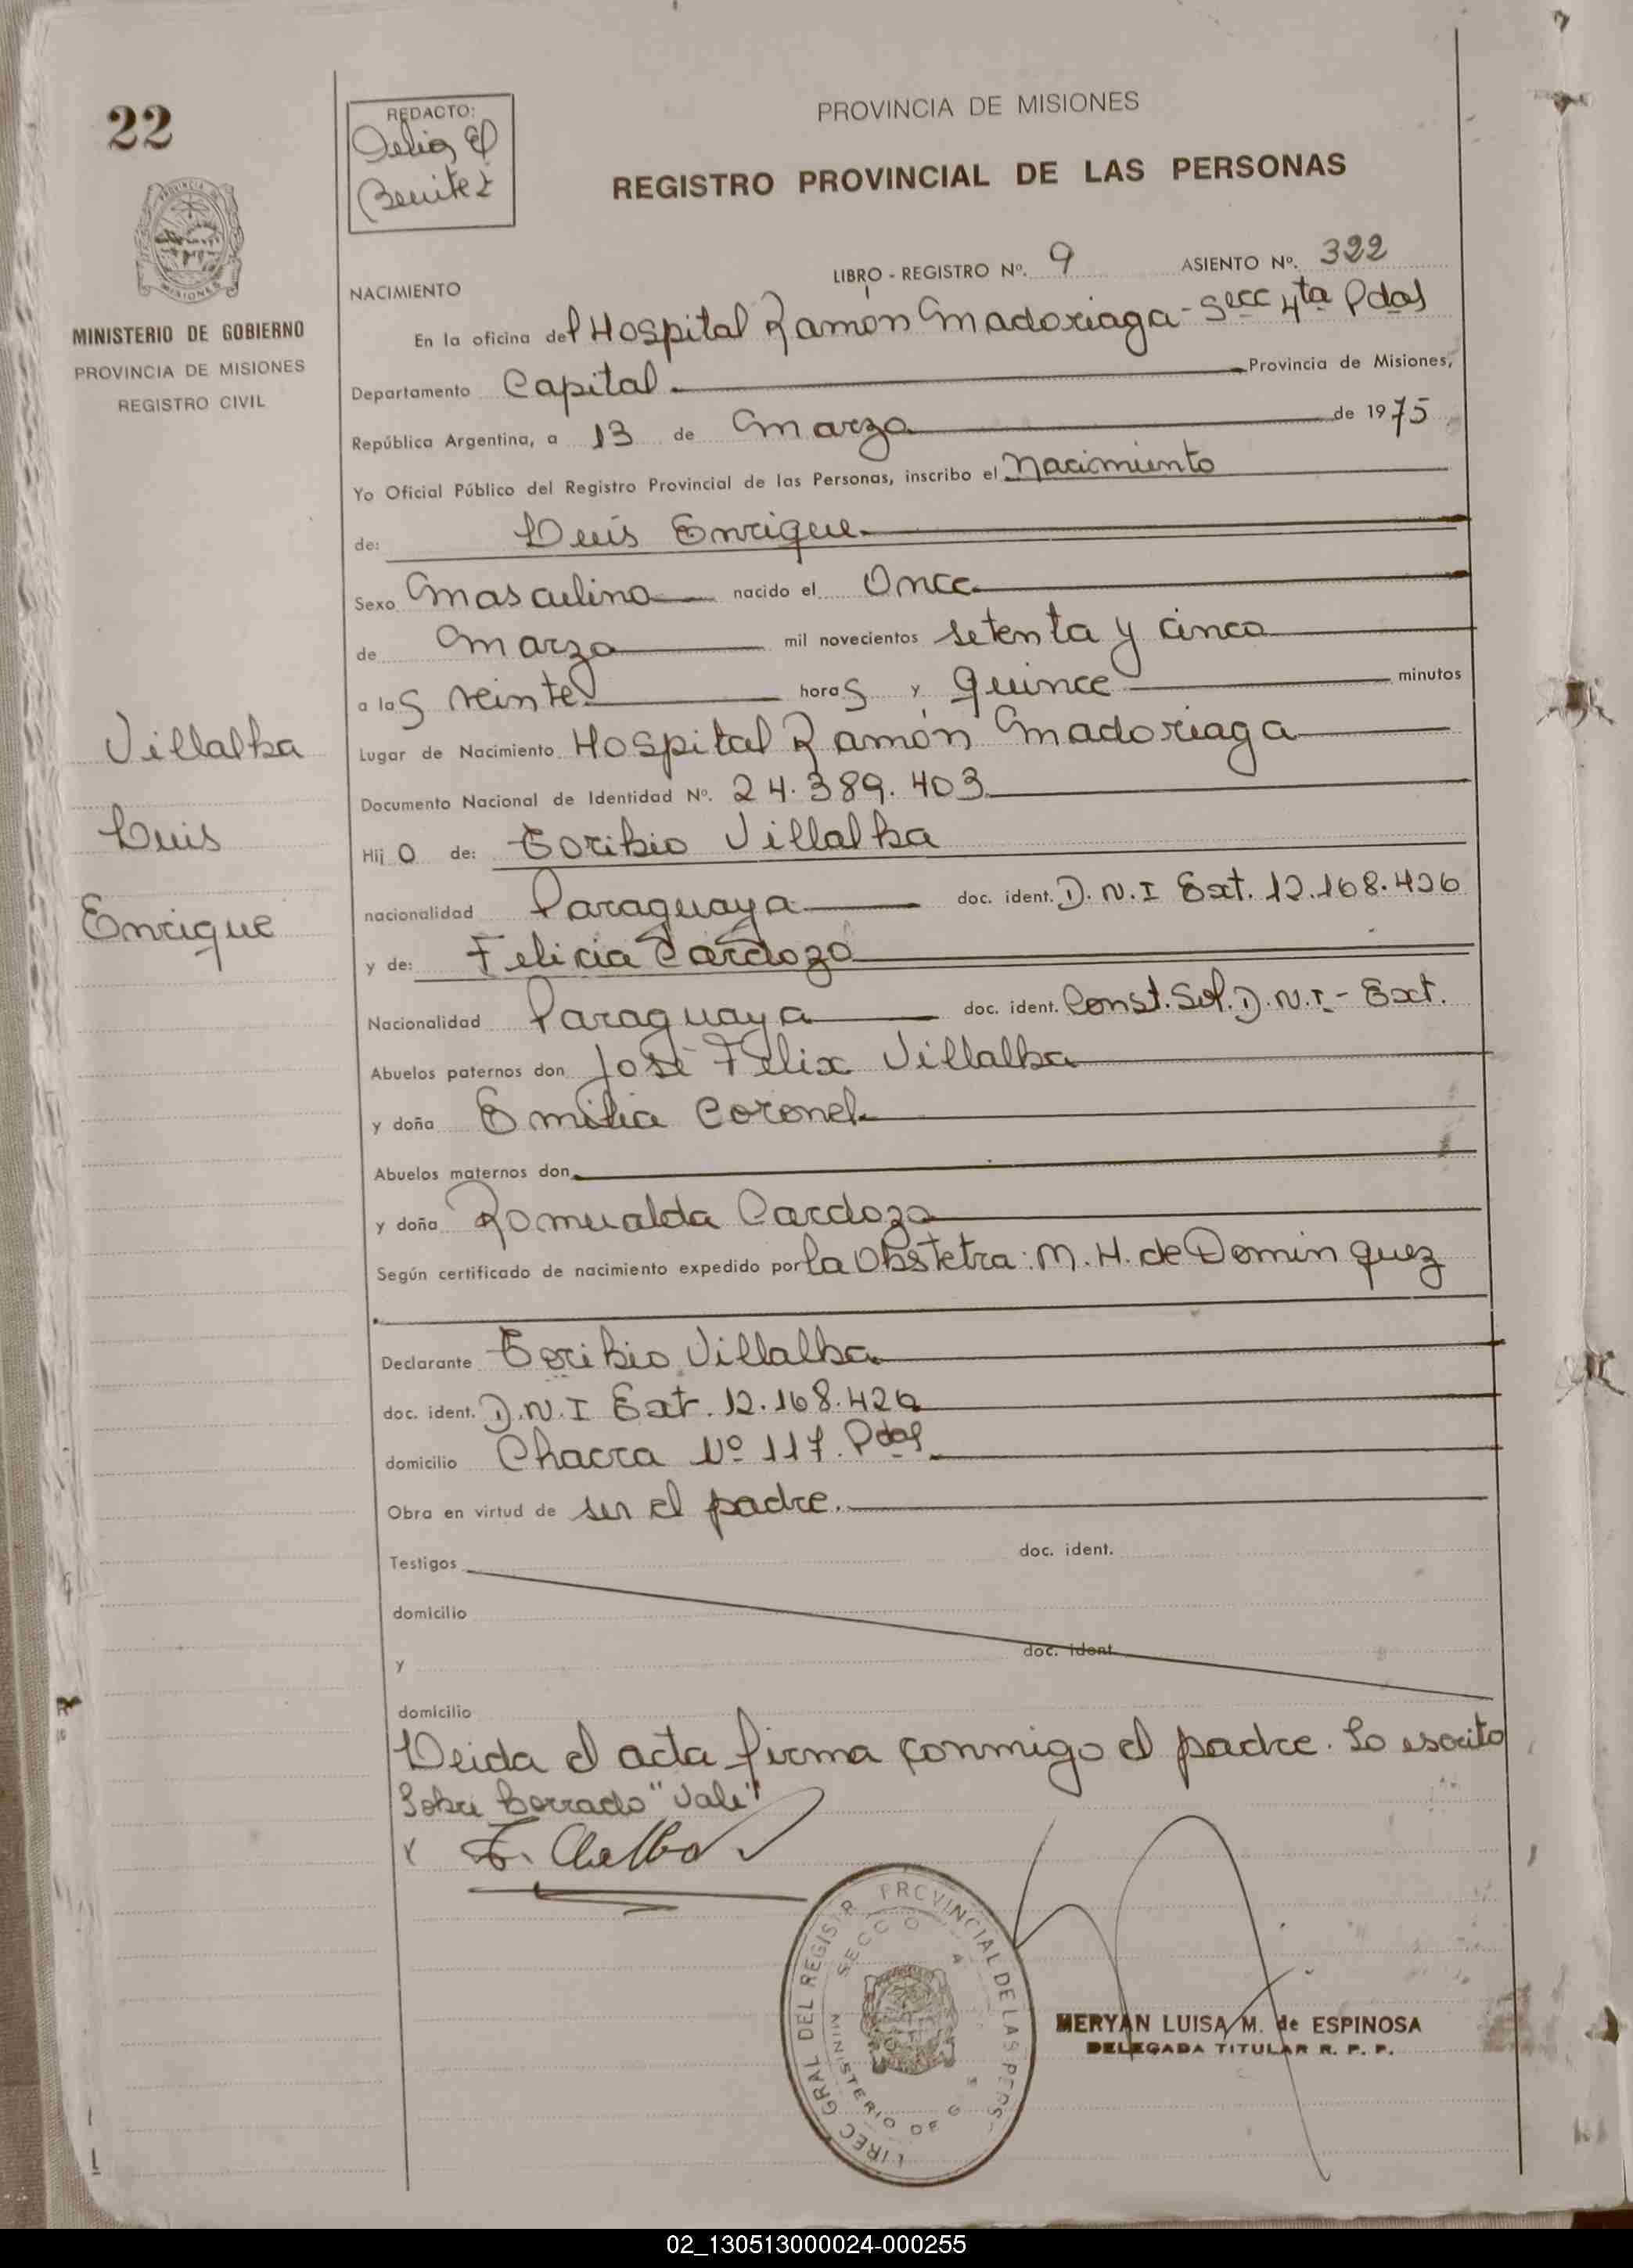 22
REDACTO:
Delia E
Benitez
PROVINCIA DE MISIONES
REGISTRO PROVINCIAL DE LAS PERSONAS
MINISTERIO DE GOBIERNO
PROVINCIA DE MISIONES
REGISTRO CIVIL
NACIMIENTO
LIBRO - REGISTRO Nº. 9 ASIENTO Nº. 322
En la oficina del Hospital Ramón Madoriaga - Secc 4ta Pdas
Departamento Capital. Provincia de Misiones,
República Argentina, a 13 de Marzo de 1975
Yo Oficial Público del Registro Provincial de las Personas, inscribo el Nacimiento
de: Luis Enrique
Sexo Masculino nacido el Once
de Marzo mil novecientos setenta y cinco
a las veinte horas y quince minutos
Lugar de Nacimiento Hospital Ramón Madoriaga
Documento Nacional de Identidad Nº. 24.389.403
Villalba
Luis
Enrique
Hijo de: Toribio Villalba
nacionalidad Paraguaya doc. ident. D.N.I Ext. 12.168.426
y de: Felicia Cardozo
Nacionalidad Paraguaya doc. ident. Const. Sol. D.N.I - Ext.
Abuelos paternos don José Félix Villalba
y doña Emilia Coronel
Abuelos maternos don
y doña Romualda Cardozo
Según certificado de nacimiento expedido por la Obstetra: M. H. de Dominguez
Declarante Toribio Villalba
doc. ident. D.N.I Ext. 12.168.426
domicilio Chacra Nº 117. Pdas
Obra en virtud de ser el padre.
Testigos doc. ident.
domicilio
y doc. ident.
domicilio
Leida el acta firma conmigo el padre. Lo escrito
Sobre borrado "Vale"
DIREC GRAL DEL REGISTR PROVINCIAL DE LAS PERS
MINISTERIO DE
MERYAN LUISA M. de ESPINOSA
DELEGADA TITULAR R. P. P.
02_130513000024-000255